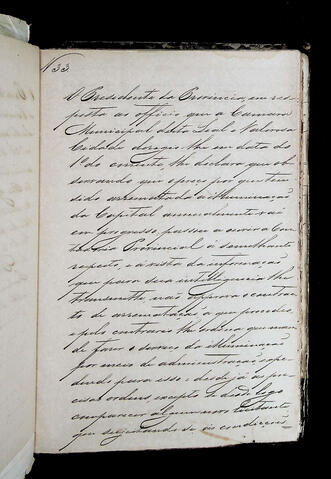 N 33.
O Presidente da Provincia, em res
posta ao officio que a Camara
Municipal desta Leal e Valorosa
Cidade dirigio-lhe em data do
1º do corrente, lhe declara que ob
servando que o preço por que tem
sido arrematada a illuminação
da Capital annualmente vai
em progresso, passou a ouvir a Con
tadoria Provincial á semelhante
respeito, e á vista da informação
que para sua intelligencia lhe
transmitte, não approva o contrac
to de arrematação a que procedeo,
e pelo contrario lhe ordena que man
de fazer o serviço da illuminação
por meio de administração, expe
dindo para esse desde já as pre
cisas ordens, excepto se desde logo
comparecer algum novo licitante,
que sujeitando-se ás condicções